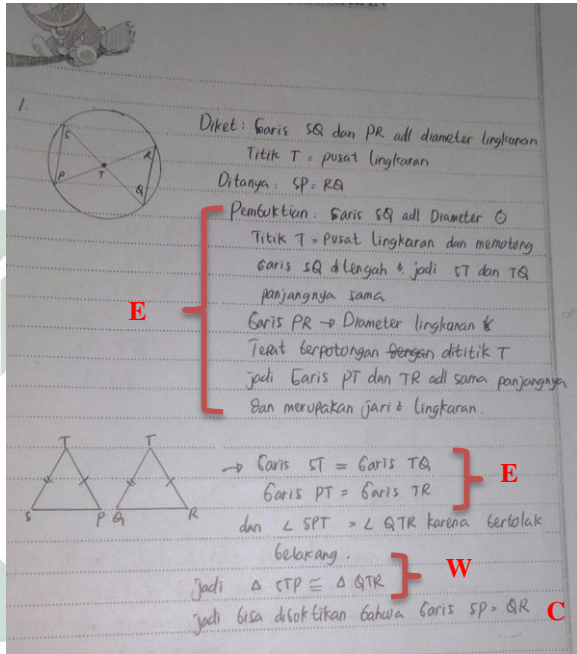 1.
S
R
P
T
Q
Diket : Garis SQ dan PR adl diameter lingkaran
Titik T = pusat lingkaran
Ditanya : SP = RQ
Pembuktian : Garis SQ adl Diameter O
Titik T = Pusat lingkaran dan memotong
Garis SQ ditengah & jadi ST dan TQ
panjangnya sama
E
Garis PR → Diameter lingkaran &
Tepat berpotongan dengan dititik T
jadi Garis PT dan TR adl sama panjangnya
dan merupakan jari & lingkaran.
T T
S P Q R
→ Garis ST = Garis TQ
E
Garis PT = Garis TR
dan ∠ SPT = ∠ QTR karena bertolak
belakang.
W
jadi Δ STP ≅ Δ QTR
jadi bisa dibuktikan bahwa Garis SP = QR C